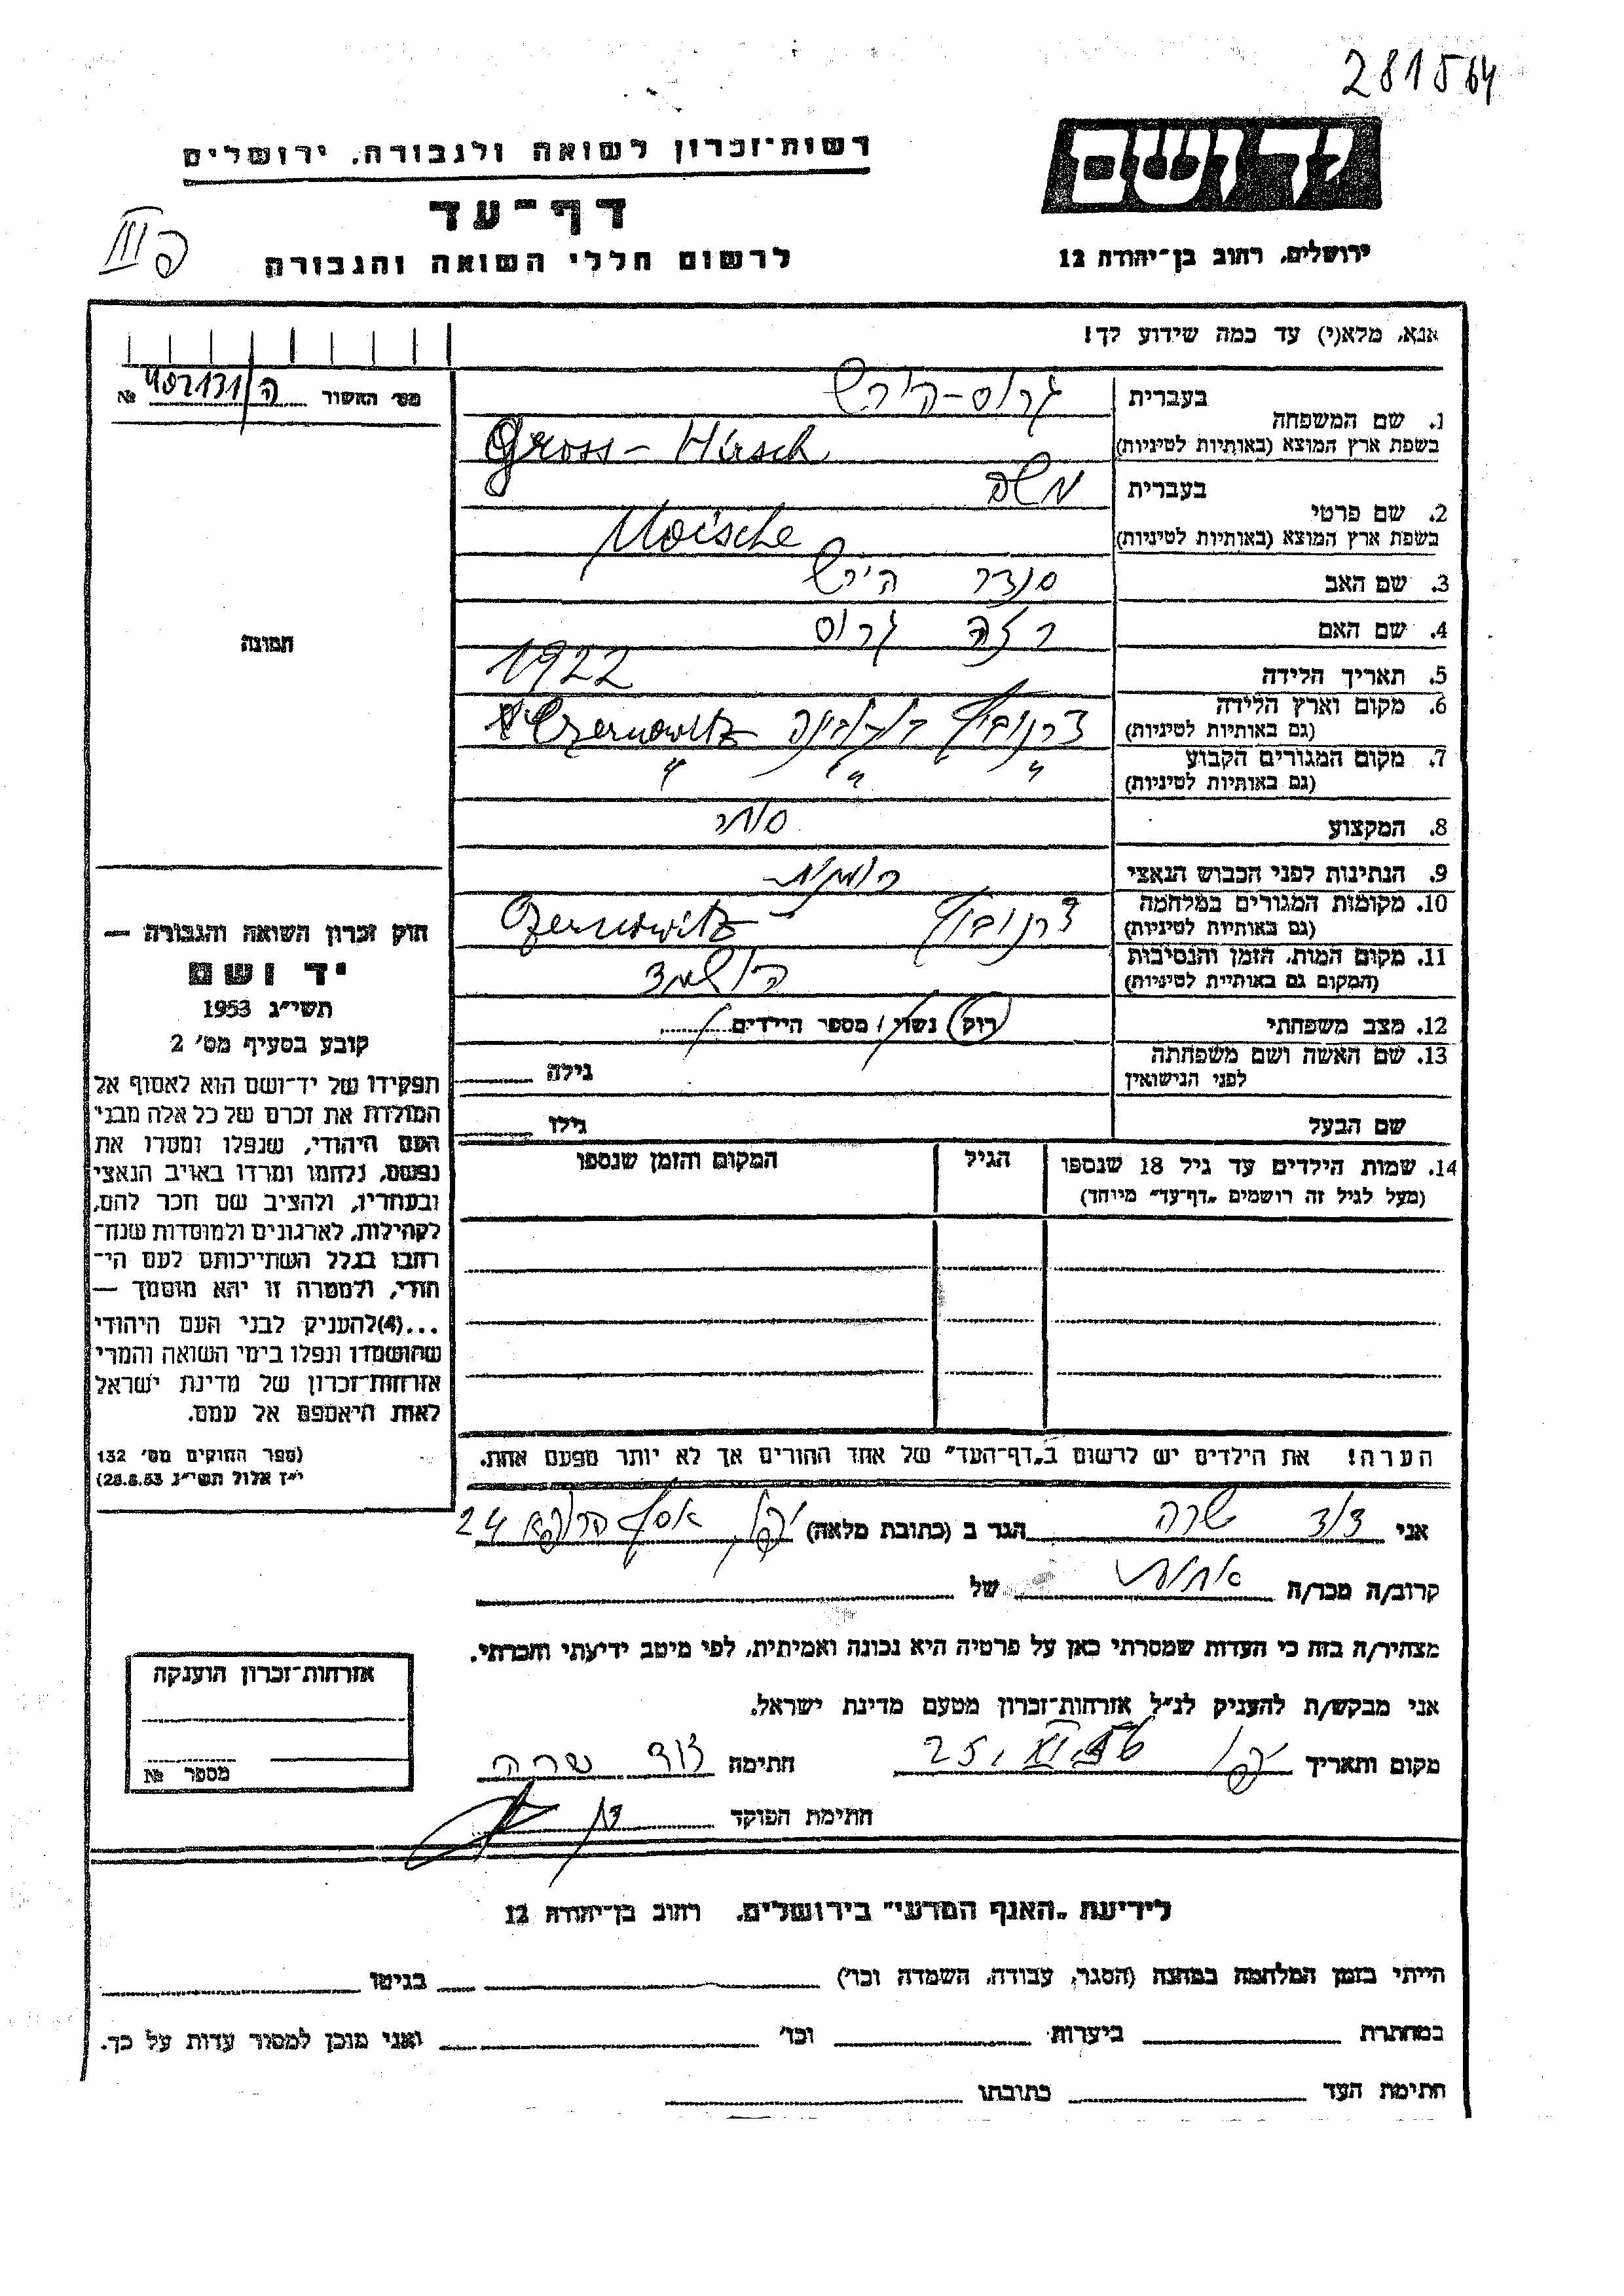 281564
יד ושם
רשות־זכרון לשואה ולגבורה, ירושלים
דף־עד
לרשום חללי השואה והגבורה
ירושלים, רחוב בן־יהודה 12
III פ
אנא, מלא(י) עד כמה שידוע לך!
מס׳ האשור ה/402131 №
1. שם המשפחה
בעברית גרוס-הירש
בשפת ארץ המוצא (באותיות לטיניות) Gross - Hirsch
2. שם פרטי
בעברית משה
בשפת ארץ המוצא (באותיות לטיניות) Moische
3. שם האב סנדר הירש
4. שם האם רזה גרוס
5. תאריך הלידה 1922
6. מקום וארץ הלידה
(גם באותיות לטיניות) צרנוביץ בוקובינה Czernowitz
7. מקום המגורים הקבוע
(גם באותיות לטיניות) " " "
8. המקצוע סוחר
9. הנתינות לפני הכבוש הנאצי רומנית
10. מקומות המגורים במלחמה
(גם באותיות לטיניות) צרנוביץ Czernowitz
11. מקום המות, הזמן והנסיבות
(המקום גם באותיות לטיניות) הושמד
12. מצב משפחתי רוק / נשוי / מספר הילדים
13. שם האשה ושם משפחתה
לפני הנישואין גילה
שם הבעל גילו
14. שמות הילדים עד גיל 18 שנספו
(מעל לגיל זה רושמים „דף־עד״ מיוחד)
הגיל
המקום והזמן שנספו
תמונה
חוק זכרון השואה והגבורה —
יד ושם
תשי״ג 1953
קובע בסעיף מס׳ 2
תפקידו של יד־ושם הוא לאסוף אל
המולדת את זכרם של כל אלה מבני
העם היהודי, שנפלו ומסרו את
נפשם, נלחמו ומרדו באויב הנאצי
ובעוזריו, ולהציב שם וזכר להם,
לקהילות, לארגונים ולמוסדות שנח־
רבו בגלל השתייכותם לעם הי־
הודי, ולמטרה זו יהא מוסמך —
...(4)להעניק לבני העם היהודי
שהושמדו ונפלו בימי השואה והמרי
אזרחות־זכרון של מדינת ישראל
לאות היאספם אל עמם.
(ספר החוקים מס׳ 132
י״ז אלול תשי״ג 28.8.53)
הערה! את הילדים יש לרשום ב„דף־העד״ של אחד ההורים אך לא יותר מפעם אחת.
אני דוד שרה הגר ב (כתובת מלאה) יפו, אסף הרופא 24
קרוב/ה מכר/ה אחות של
מצהיר/ה בזה כי העדות שמסרתי כאן על פרטיה היא נכונה ואמיתית, לפי מיטב ידיעתי והכרתי.
אני מבקש/ת להעניק לנ״ל אזרחות־זכרון מטעם מדינת ישראל.
מקום ותאריך יפו 25. XI. 56 חתימה דוד שרה
חתימת הפוקד
אזרחות־זכרון הוענקה
מספר №
לידיעת „האגף המדעי״ בירושלים, רחוב בן־יהודה 12
הייתי בזמן המלחמה במחנה (הסגר, עבודה, השמדה וכו׳) בגיטו
במחתרת ביערות וכו׳ ואני מוכן למסור עדות על כך.
חתימת העד כתובתו